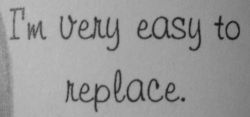 I'm very easy to
replace.